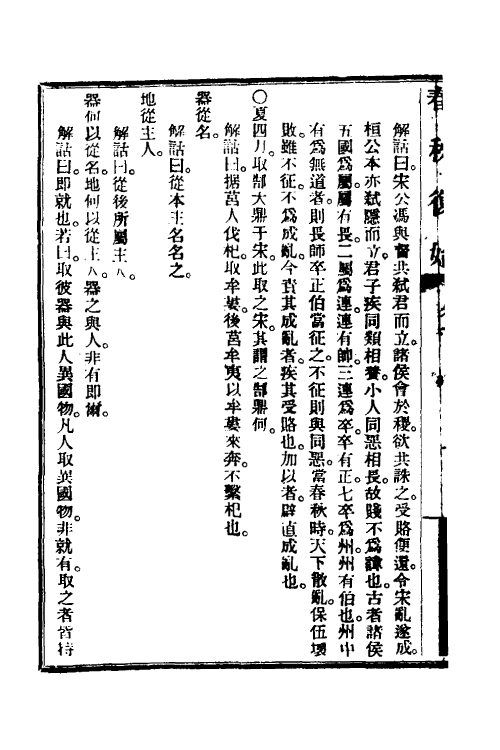 春秋復始
解詁曰宋公馮與督共弒君而立。諸侯會於稷。欲共誅之。受賂便還。令宋亂遂成。
桓公本亦弒隱而立。君子疾同類相養。小人同惡相長。故賤不爲諱也。古者諸侯
五國爲屬。屬有長。二屬爲連。連有帥。三連爲卒。卒有正。七卒爲州。州有伯也。州中
有爲無道者。則長帥卒正伯當征之。不征則與同惡。當春秋時。天下散亂。保伍壞
敗。雖不征。不爲成亂。今責其成亂者。疾其受賂也。加以者。辟直成亂也。
〇夏四月。取郜大鼎于宋。此取之宋。其謂之郜鼎何。
解詁曰。据莒人伐杞取牟婁。後莒牟夷以牟婁來奔。不繫杞也。
器從名。
解詁曰。從本主名名之。
地從主人。
解詁曰。從後所屬主人。
器何以從名。地何以從主人。器之與人。非有即爾。
解詁曰。即就也。若曰取彼器與此人異國物。凡人取異國物。非就有。取之者皆持